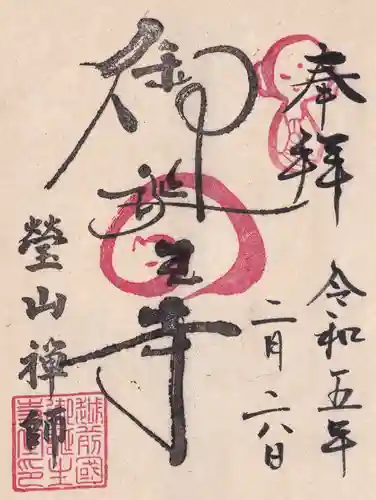 奉拝
令和五年
二月二六日
御誕生寺
瑩山禅師
越前國御誕生寺印